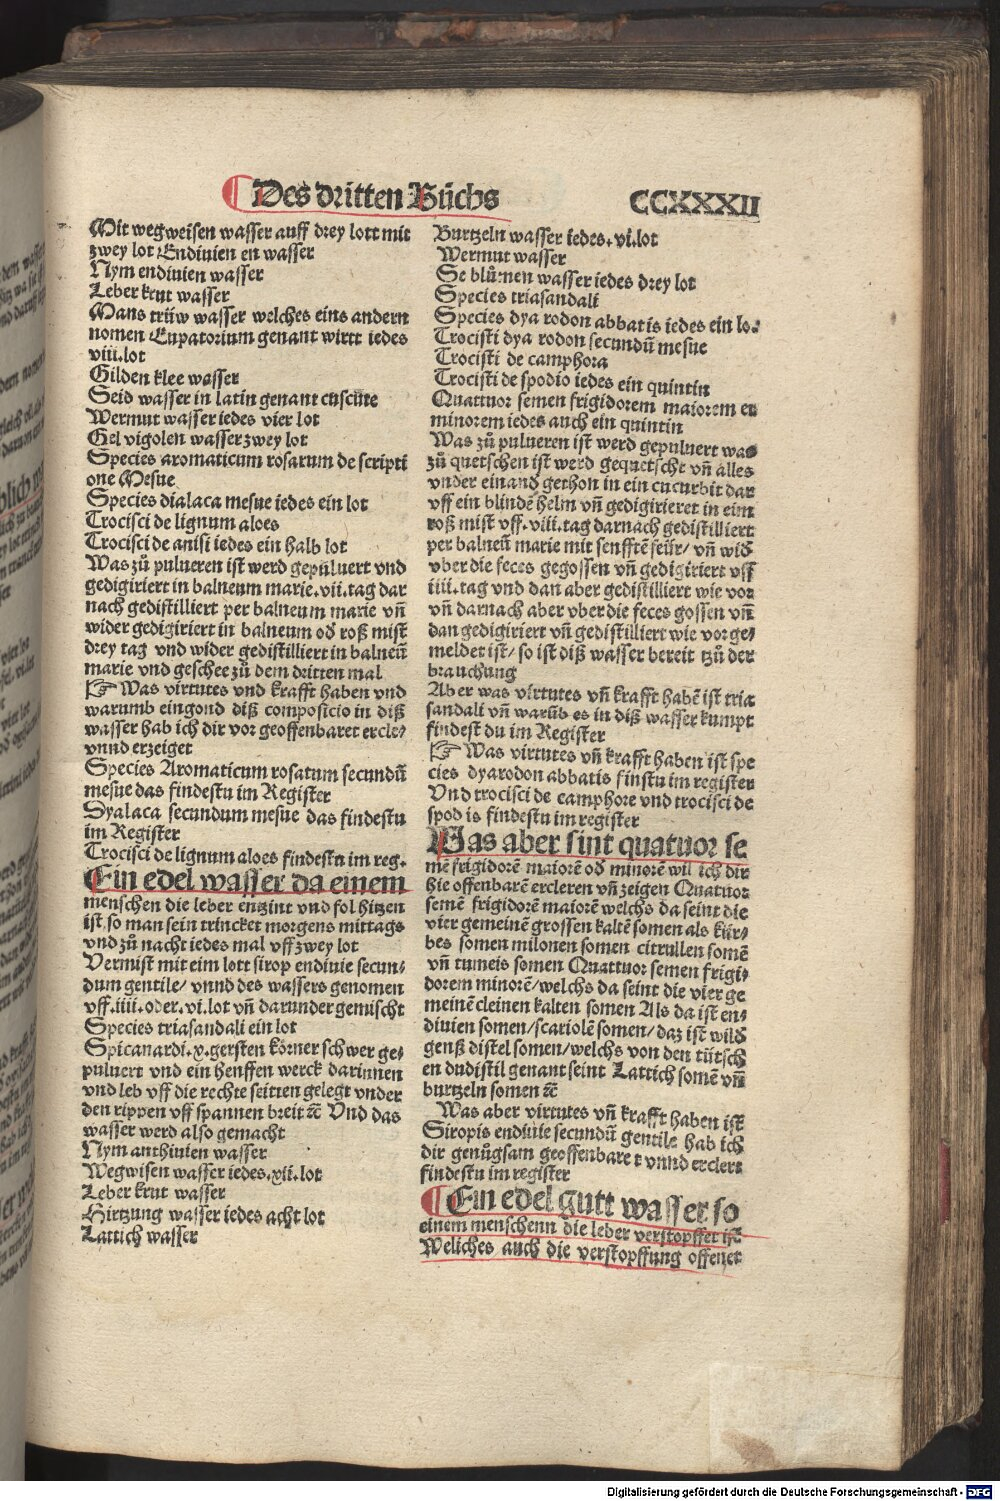 Des dritten Bůchs CCXXXII
Mit wegweisen wasser auff drey lott mit
zwey lot Endiuien en wasser
Nym endiuien wasser
Leber krut wasser
Mans trüw wasser welches eins andern
nomen Eupatorium genant wirtt iedes
viii.lot
Gilden klee wasser
Seid wasser in latin genant cuscute
Wermut wasser iedes vier lot
Gel vigolen wasser zwey lot
Species aromaticum rosarum de scripti
one Mesue
Species dialaca mesue iedes ein lot
Trocisci de lignum aloes
Trocisci de anisi iedes ein halb lot
Was zů pulueren ist werd gepuluert vnd
gedigiriert in balneum marie.vii.tag dar
nach gedistilliert per balneum marie vñ
wider gedigiriert in balneum od roß mist
drey tag vnd wider gedistilliert in balneū
marie vnd geschee zů dem dritten mal
☞ Was virtutes vnd krafft haben vnd
warumb eingond diß composicio in diß
wasser hab ich dir vor geoffenbaret ercle⸗
vnnd erzeiget
Species Aromaticum rosatum secundū
mesue das findestu im Register
Dyalaca secundum mesue das findestu
im Register
Trocisci de lignum aloes findestu im reg.
Ein edel wasser da einem
menschen die leber entzint vnd fol hitzen
ist, so man sein trincket morgens mittags
vnd zů nacht iedes mal vff zwey lot
Vermist mit eim lott sirop endiuie secun⸗
dum gentile/ vnnd des wassers genomen
vff.iiii.oder.vi.lot vñ darunder gemischt
Species triasandali ein lot
Spicanardi.x.gersten körner schwer ge⸗
puluert vnd ein henffen werck darinnen
vnd leb vff die rechte seitten gelegt vnder
den rippen vff spannen breit ⁊c̄ Vnd das
wasser werd also gemacht
Nym anthiuien wasser
Wegwisen wasser iedes.xii.lot
Leber krut wasser
Hirtzung wasser iedes acht lot
Lattich wasser
Burtzeln wasser iedes.vi.lot
Wermut wasser
Se blůmen wasser iedes drey lot
Species triasandali
Species dya rodon abbatis iedes ein lo.
Trocisti dya rodon secundū mesue
Trocisti de camphora
Trocisti de spodio iedes ein quintin
Quattuor semen frigidorem maiorem et
minorem iedes auch ein quintin
Was zů pulueren ist werd gepuluert was
zů quetschen ist werd gequetscht vñ alles
vnder einand gethon in ein cucurbit dar
vff ein blindē helm vñ gedigirieret in eim
roß mist vff.viii.tag darnach gedistilliert
per balneū marie mit senfftē feür/ vñ wid
vber die feces gegossen vñ gedigiriert vff
iiii.tag vnd dan aber gedistilliert wie vor
vñ darnach aber vber die feces gossen vñ
dan gedigiriert vñ gedistilliert wie vor ge⸗
meldet ist/ so ist diß wasser bereit tzů der
brauchung
Aber was virtutes vñ krafft habē ist tria
sandali vñ warūb es in diß wasser kumpt
findest du im Register
☞ Was virtutes vñ krafft haben ist spe
cies dyarodon abbatis finstu im register
Vnd trocisci de camphore vnd trocisci de
spod is findestu im register
Was aber sint quatuor se
mē frigidorē maiorē od minorē wil ich dir
hie offenbarē ercleren vñ zeigen Quatuor
semē frigidorē maiorē welchs da seint die
vier gemeinē grossen kaltē somen als kür⸗
bes somen milonen somen citrullen somē
vñ cumeis somen Quattuor semen frigi⸗
dorem minorē/welchs da seint die vier ge
meinē cleinen kalten somen Als da ist en⸗
diuien somen/scariolē somen/ daz ist wild
genß distel somen/welchs von den tütsch
en dudistil genant seint Lattich somē vñ
burtzeln somen ⁊c̄
Was aber virtutes vñ krafft haben ist
Siropis endiuie secundū gentile hab ich
dir genůgsam geoffenbare t vnnd erclert
findestu im register
Ein edel gutt wasser so
einem menschenn die leber verstopffet ist
Weliches auch die verstopffung offenet
Digitalisierung gefördert durch die Deutsche Forschungsgemeinschaft - DFG